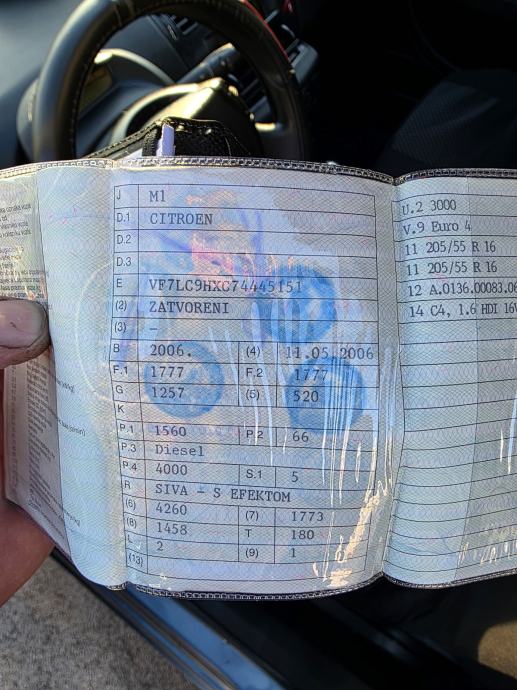 J M1
D.1 CITROEN
D.2
D.3
E VF7LC9HXC74445151
(2) ZATVORENI
(3) –
B 2006. (4) 11.05.2006
F.1 1777 F.2 1777
G 1257 (5) 520
K
P.1 1560 P.2 66
P.3 Diesel
P.4 4000 S.1 5
R SIVA - S EFEKTOM
(6) 4260 (7) 1773
(8) 1458 T 180
L 2 (9) 1
(13)
U.2 3000
V.9 Euro 4
11 205/55 R 16
11 205/55 R 16
12 A.0136.00083.06
14 C4, 1.6 HDI 16V